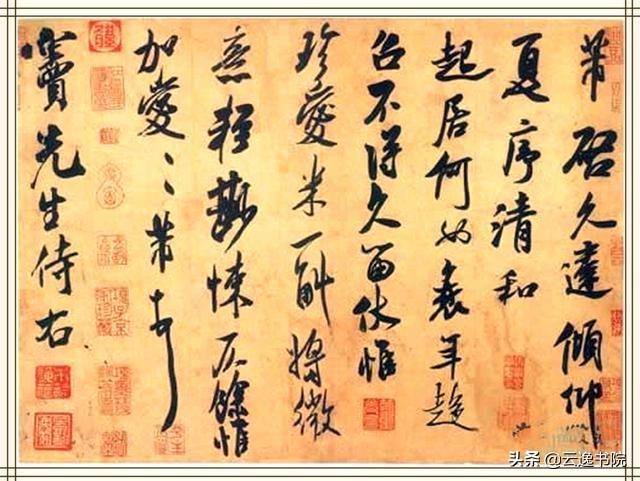 芾啓久違傾仰
夏序清和
起居何如衰年趍
召不得久留伏惟
珍愛米一斛將微
意輕尠悚仄餘惟
加愛〻芾頓首
竇先生侍右
头条 @云逸书院